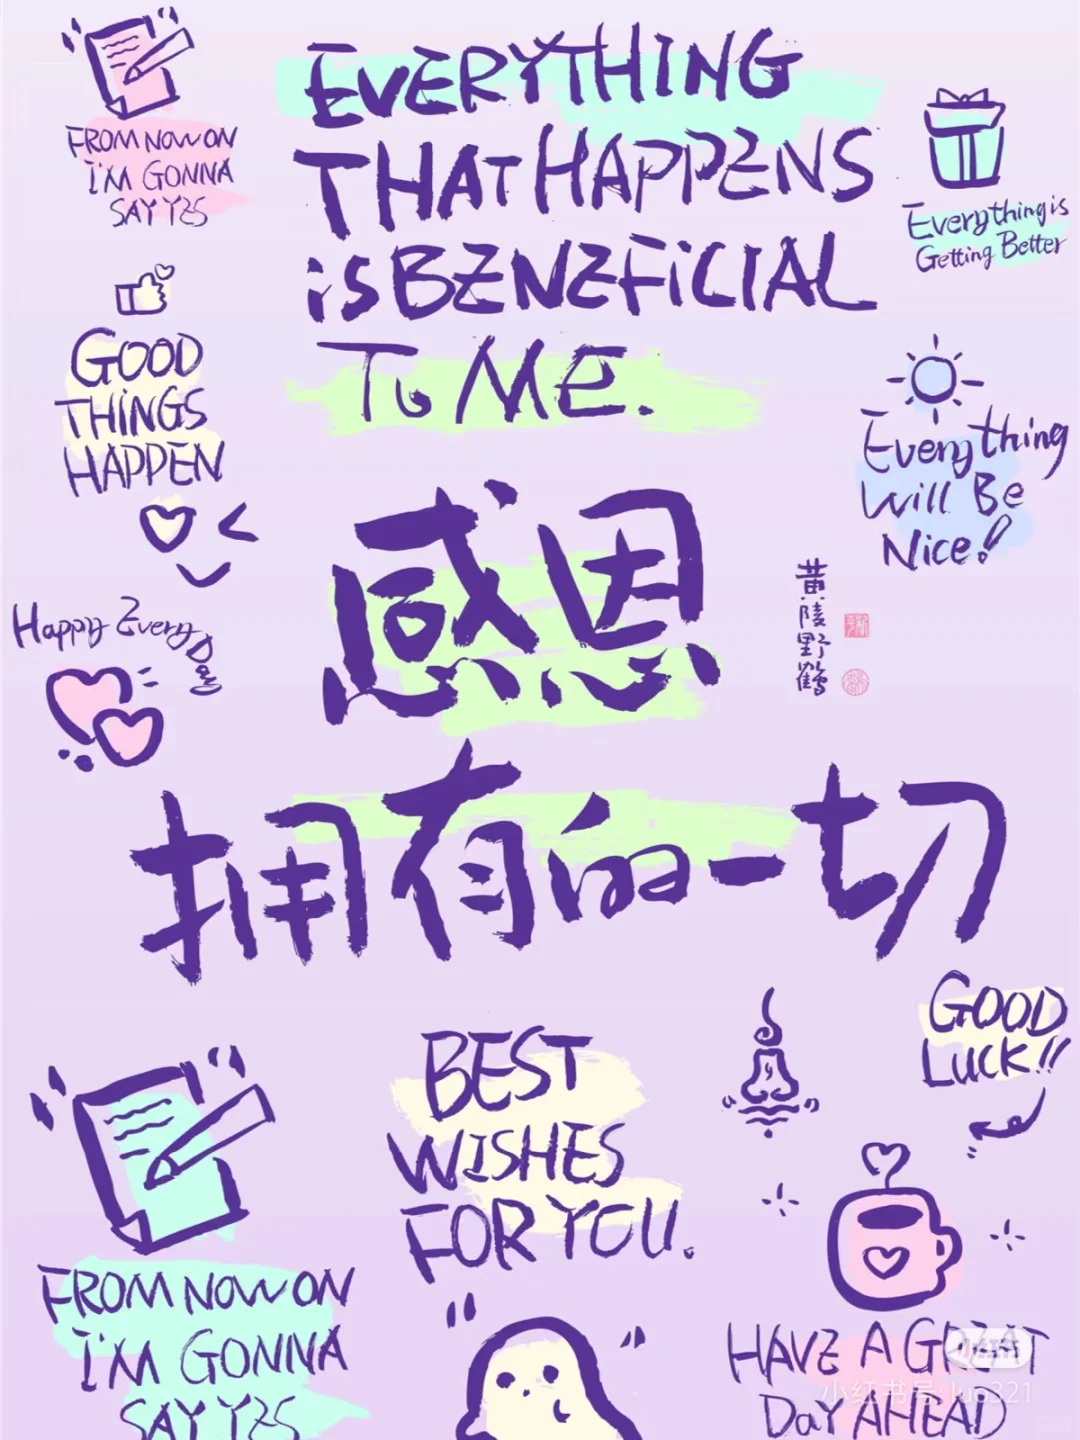 EVERYTHING
THAT HAPPENS
iS BENEFiCIAL
To ME.
FROM NOW ON
I'M GONNA
SAY YES
Everything is
Getting Better
GOOD
THiNGS
HAPPEN
Everything
Will Be
Nice!
Happy Every Day
感恩
黄陵野鹤
拥有的一切
GOOD
LUCK!!
BEST
WISHES
FOR YOU.
FROM NOW ON
I'M GONNA
SAY YES
HAVE A GREAT
DaY AHEAD
小红书
小红书号:luo321